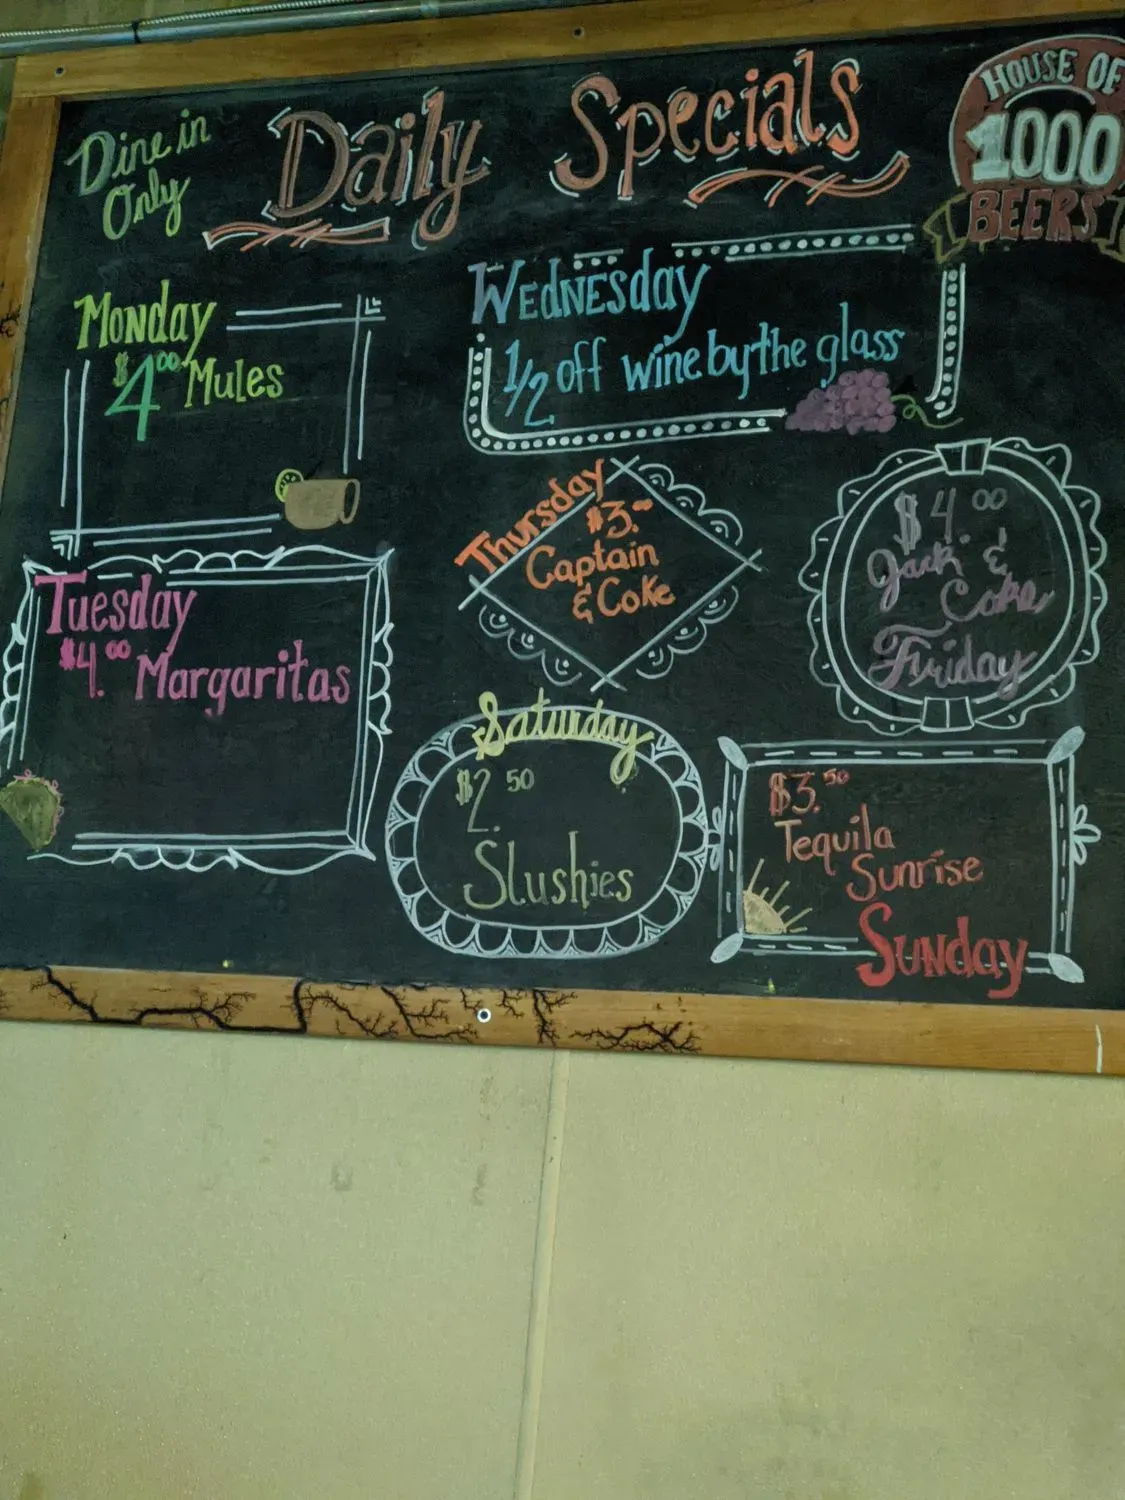 Dine in
Only
Daily Specials
HOUSE OF
1000
BEERS
Monday
$4.00 Mules
Wednesday
1/2 off wine by the glass
Tuesday
$4.00 Margaritas
Thursday
$3.00
Captain
& Coke
$4.00
Jack &
Coke
Friday
Saturday
$2.50
Slushies
$3.50
Tequila
Sunrise
Sunday